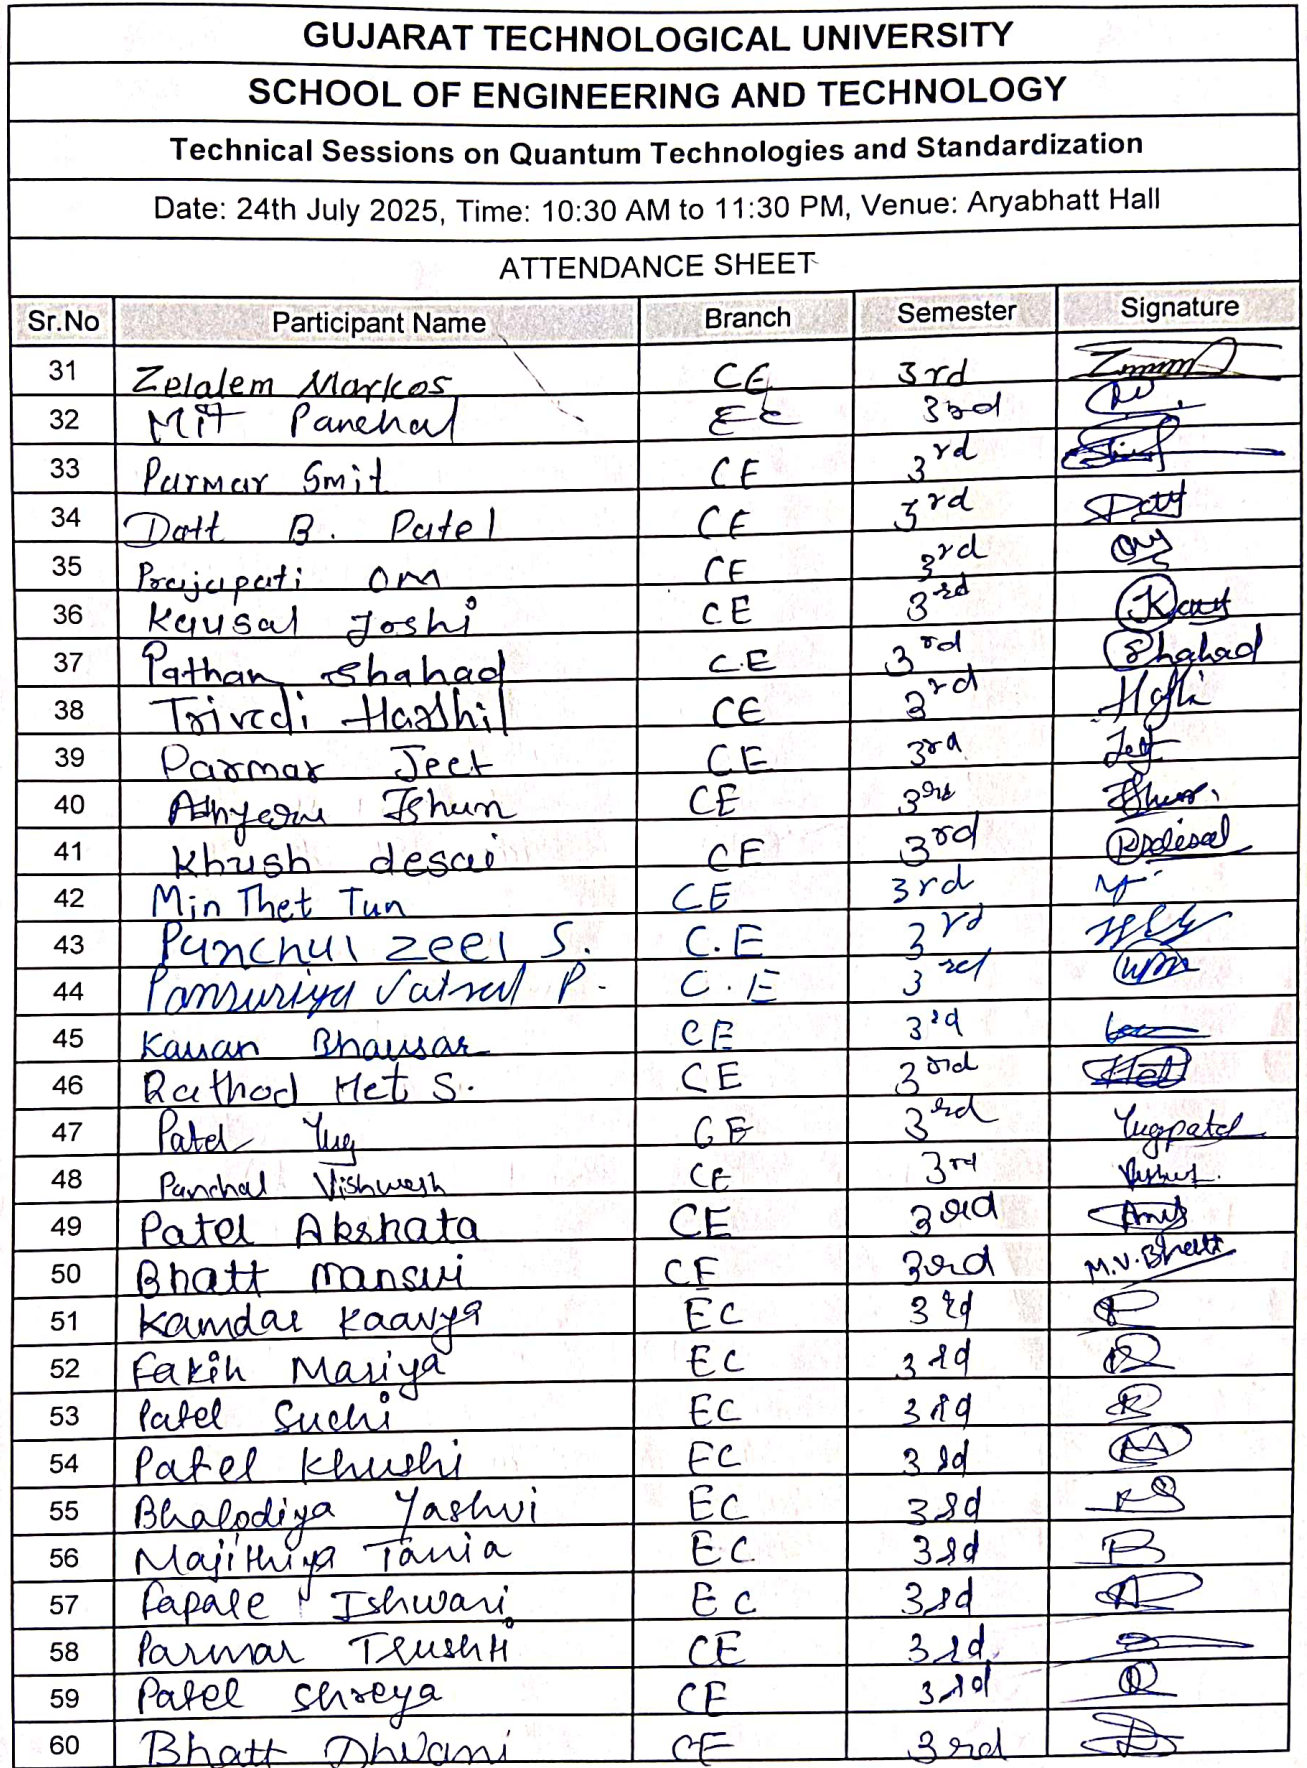 GUJARAT TECHNOLOGICAL UNIVERSITY
SCHOOL OF ENGINEERING AND TECHNOLOGY
Technical Sessions on Quantum Technologies and Standardization
Date: 24th July 2025, Time: 10:30 AM to 11:30 PM, Venue: Aryabhatt Hall
ATTENDANCE SHEET
Sr.No Participant Name Branch Semester Signature
31 Zelalem Markos CE 3rd
32 Mit Panchal EC 3rd
33 Parmar Smit CE 3rd
34 Datt B. Patel CE 3rd Datt
35 Prajapati Om CE 3rd
36 Kausal Joshi CE 3rd
37 Pathan Shahad C.E 3rd Shahad
38 Trivedi Harshil CE 3rd
39 Parmar Jeet CE 3rd Jeet
40 Ishan CE 3rd
41 Khush desai CE 3rd
42 Min Thet Tun CE 3rd
43 Panchal zeel S. C.E 3rd
44 Pansuriya Vatsal P. C.E 3rd
45 Kavan Bhavsar CE 3rd
46 Rathod Het S. CE 3rd Het
47 Patel Yug CE 3rd Yugpatel
48 Panchal Vishwesh CE 3rd
49 Patel Akshata CE 3rd
50 Bhatt mansvi CE 3rd M.V.Bhatt
51 Kamdar Kaavya EC 3rd
52 Fakih Mariya EC 3rd
53 Patel Suchi EC 3rd
54 Patel Khushi EC 3rd
55 Bhalodiya Yashvi EC 3rd
56 Majithiya Tania EC 3rd
57 Fapale Ishwari EC 3rd
58 Parmar Trushti CE 3rd
59 Patel Shreya CE 3rd
60 Bhatt Dhvani CE 3rd